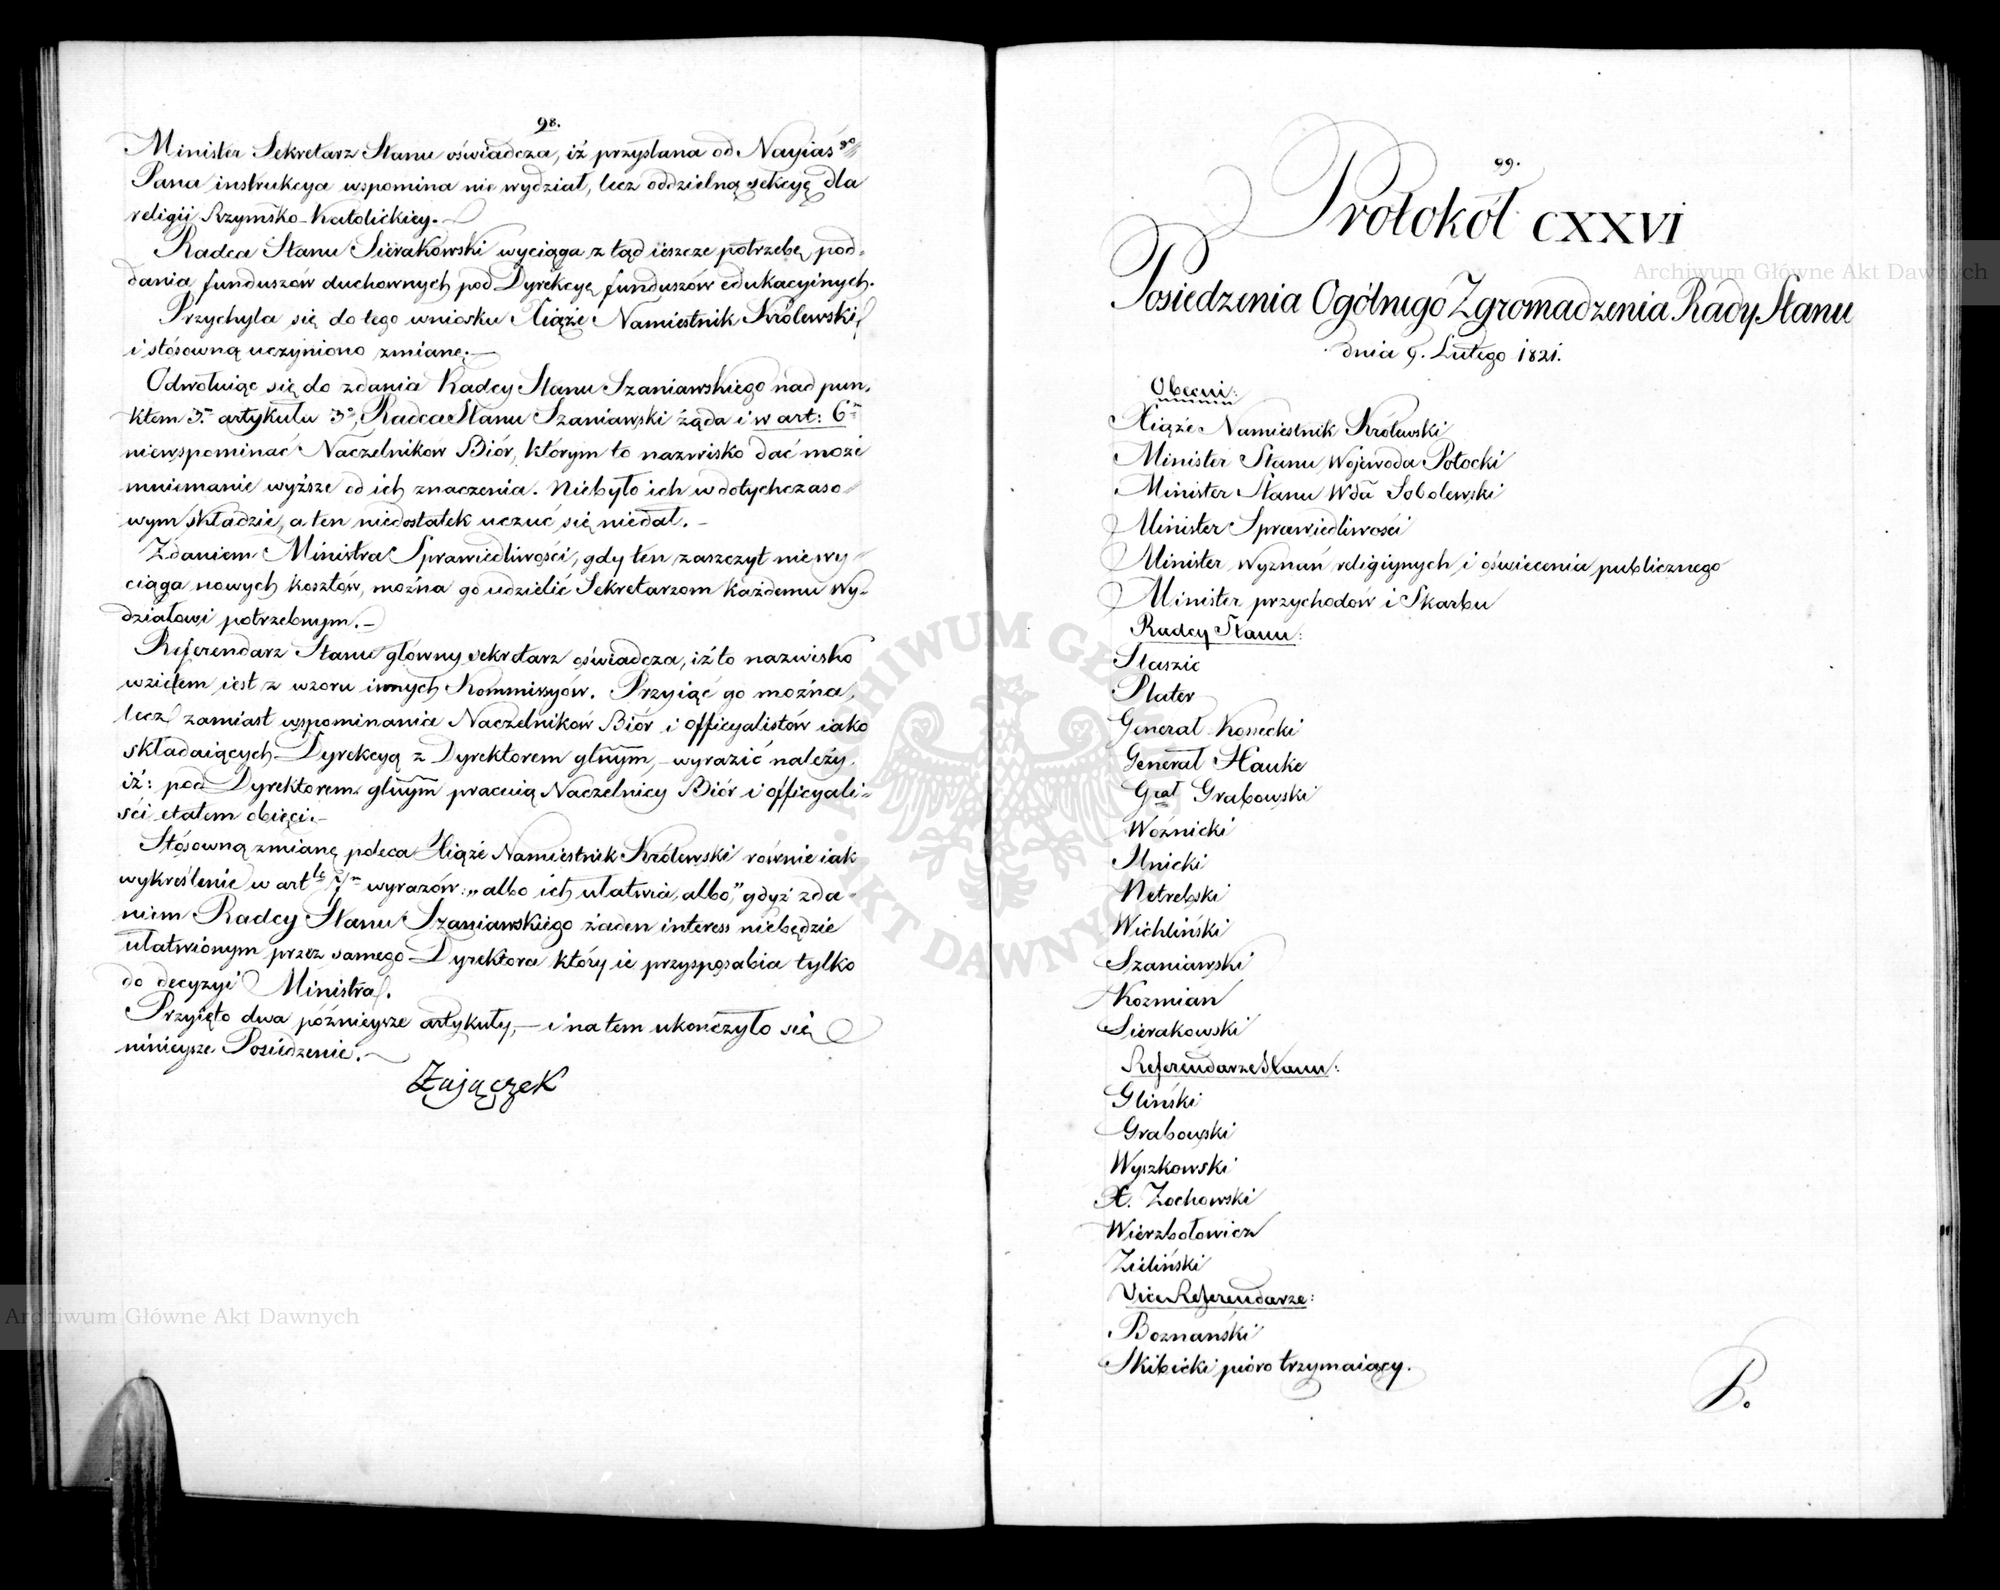 98.
Minister Sekretarz Stanu oświadcza, iż przysłana od Nayiaśgo
Pana instrukcya wspomina nie wydział, lecz oddzielną sekcyę dla
religii Rzymsko-Katolickiey.
Radca Stanu Sierakowski wyciąga z tąd ieszcze potrzebę pod-
dania funduszów duchownych pod Dyrekcyę funduszów edukacyinych.
Przychyla się do tego wniosku Xiąże Namiestnik Królewski,
i stósowną uczyniono zmianę.
Odwołuiąc się do zdania Radcy Stanu Szaniawskiego nad pun-
ktem 3m artykułu 3o, Radca Stanu Szaniawski żąda i w art: 6m
niewspominać Naczelników Biór, którym to nazwisko dać może
mniemanie wyższe od ich znaczenia. Niebyło ich w dotychczaso-
wym składzie, a ten niedostatek uczuć się niedał.
Zdaniem Ministra Sprawiedliwości, gdy ten zaszczyt nie wy-
ciąga nowych kosztów, można go udzielić Sekretarzom każdemu Wy-
działowi potrzebnym.
Referendarz Stanu główny sekretarz oświadcza, iż to nazwisko
wziętem iest z wzoru innych Kommissyów. Przyiąć go można,
lecz zamiast wspominania Naczelników Biór i officyalistów iako
składaiących Dyrekcyą z Dyrektorem głnym, wyrazić należy,
iż: pod Dyrektorem głnym pracuią Naczelnicy Biór i officyali-
ści etatem obięci.
Stósowną zmianę poleca Xiąże Namiestnik Królewski równie iak
wykreślenie w artle 7m wyrazów: „albo ich ułatwia, albo", gdyż zda-
niem Radcy Stanu Szaniawskiego żaden interess niebędzie
ułatwionym przez samego Dyrektora który ie przysposabia tylko
do decyzyi Ministra.
Przyięto dwa późnieysze artykuły, i na tem ukończyło się
ninieysze Posiedzenie.
Zajączek
99.
Protokół CXXVI
Posiedzenia Ogólnego Zgromadzenia Rady Stanu
dnia 9. Lutego 1821.
Obecni:
Xiąże Namiestnik Królewski
Minister Stanu Wojewoda Potocki
Minister Stanu Wda Sobolewski
Minister Sprawiedliwości
Minister Wyznań religiynych i oświecenia publicznego
Minister przychodów i Skarbu
Radcy Stanu:
Staszic
Plater
Generał Kossecki
Generał Hauke
Grał Grabowski
Woźnicki
Ilnicki
Netrebski
Wichliński
Szaniawski
Kozmian
Sierakowski
Referendarze Stanu:
Gliński
Grabowski
Wyszkowski
X. Zochowski
Wierzbołowicz
Zieliński
Vice Referendarze:
Boznański
Skibicki pióro trzymaiący.
P.
Archiwum Główne Akt Dawnych
Archiwum Główne Akt Dawnych